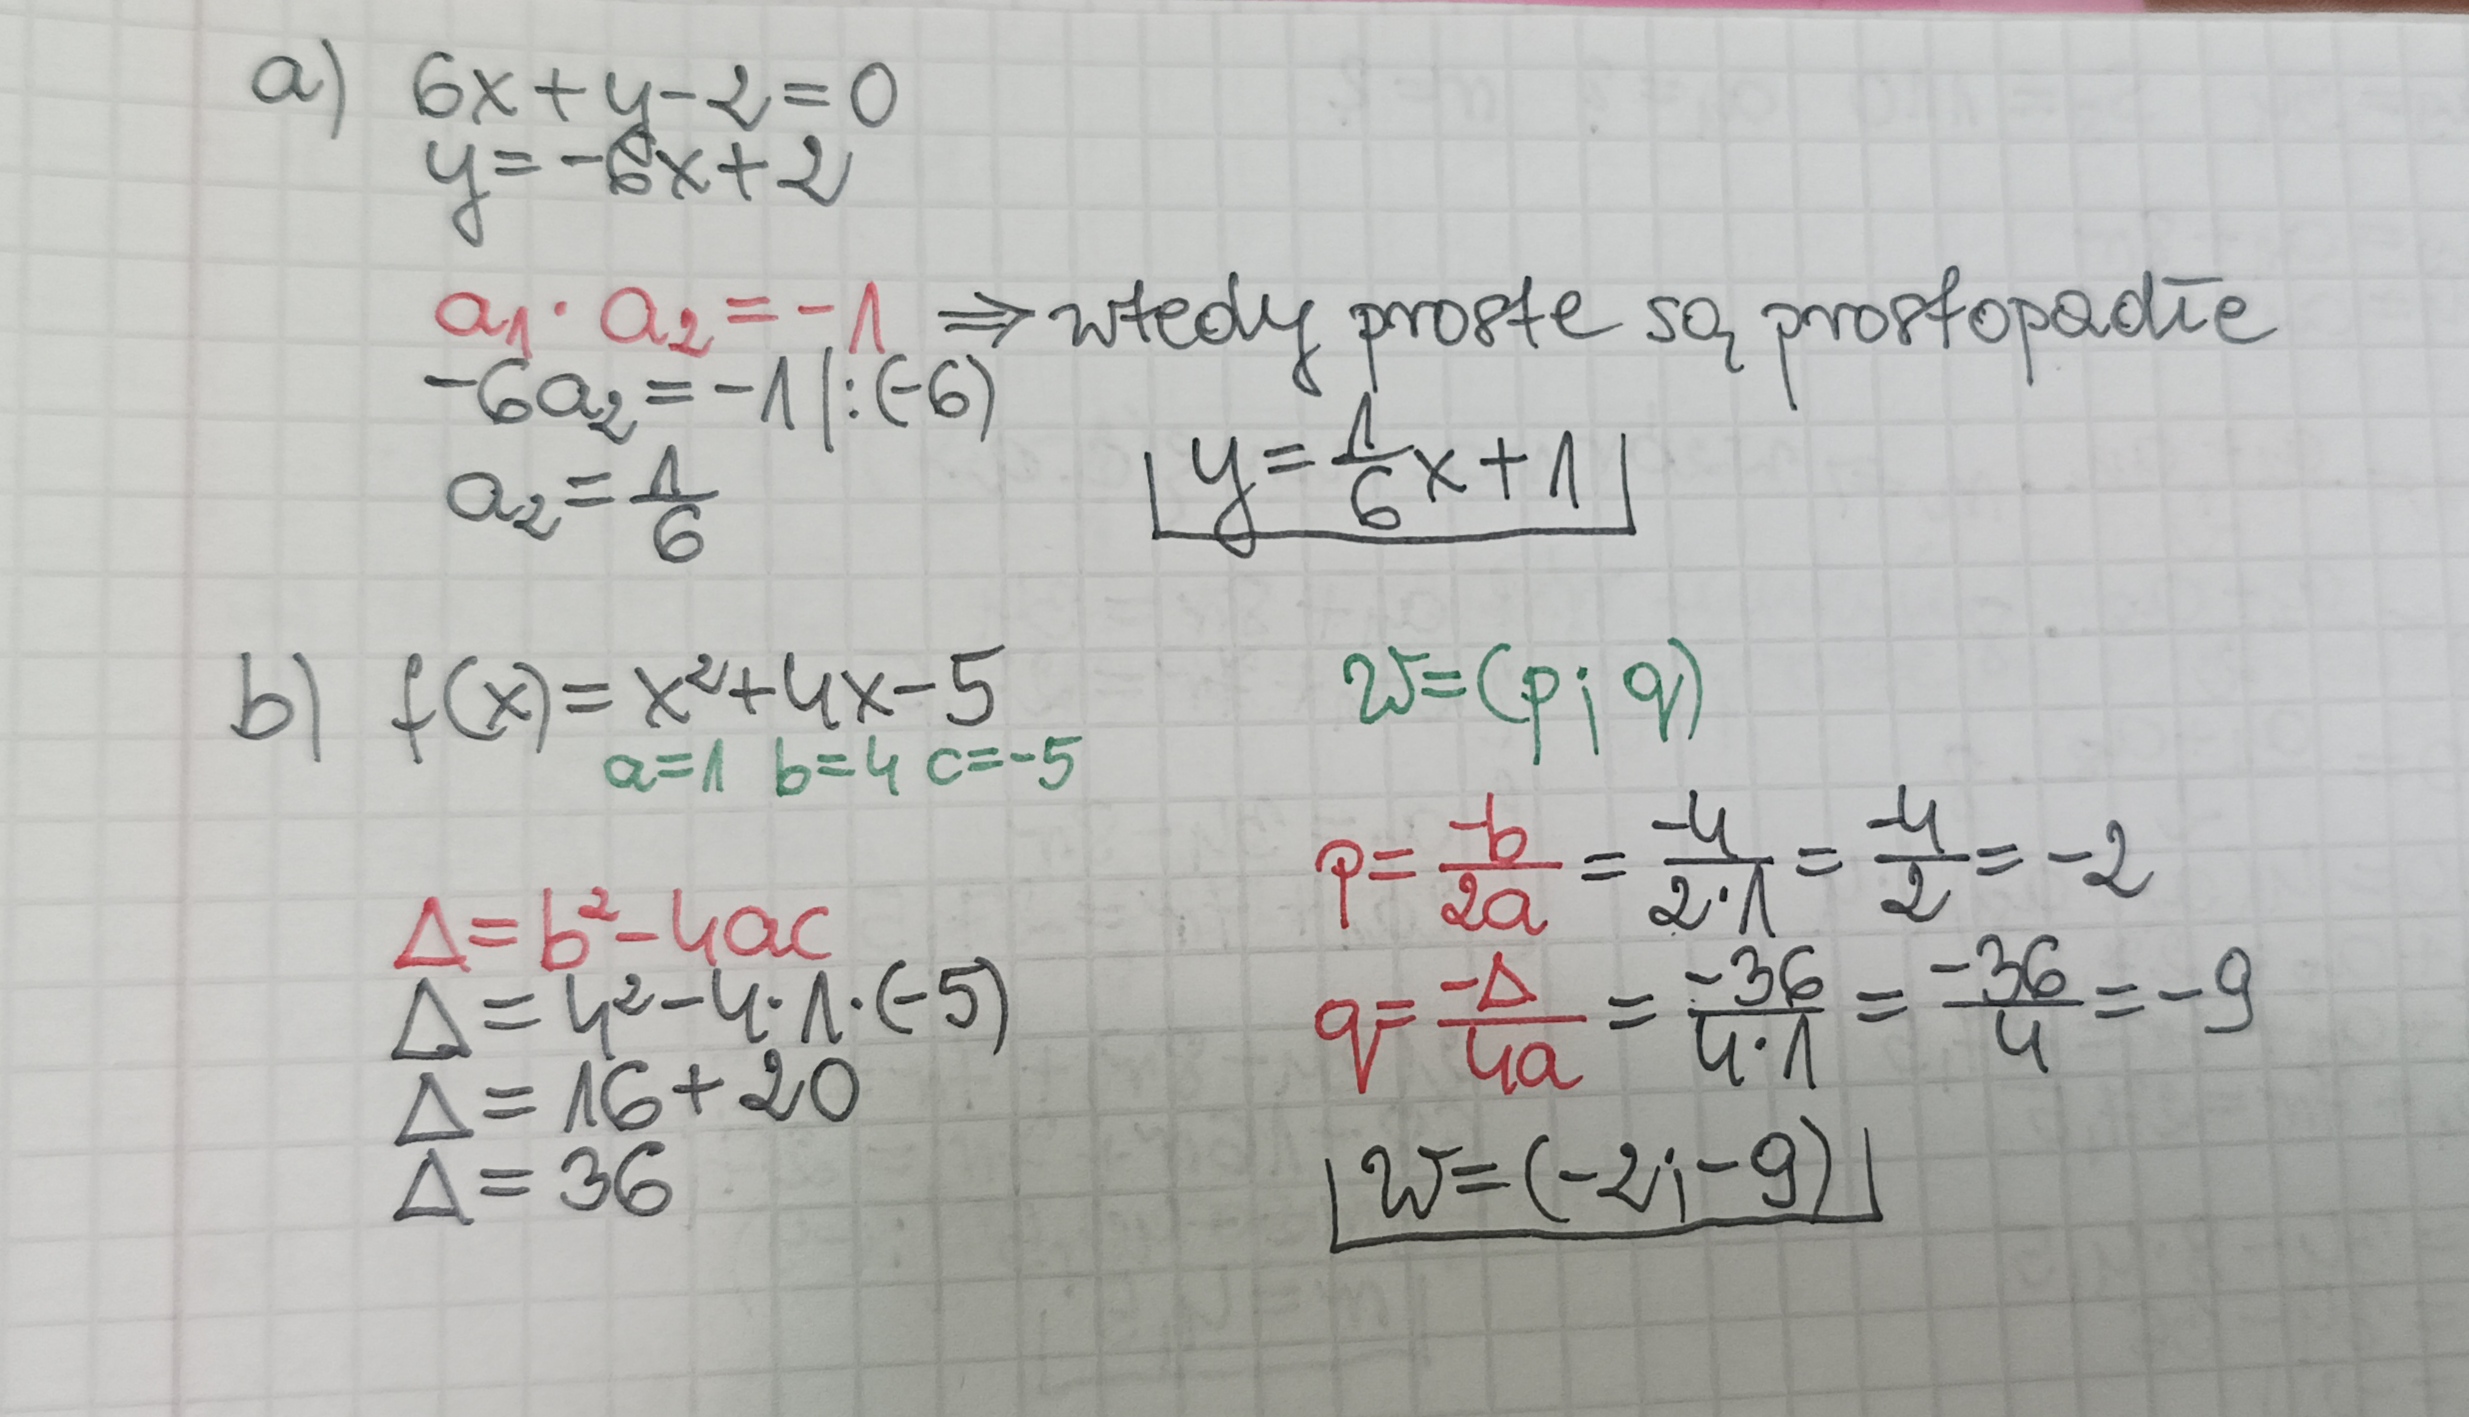 a) 6x+y-2=0
y=-6x+2
a₁·a₂=-1 ⇒ wtedy proste są prostopadłe
-6a₂=-1 |:(-6)
a₂=1/6
y=1/6x+1
b) f(x)=x²+4x-5
a=1 b=4 c=-5
Δ=b²-4ac
Δ=4²-4·1·(-5)
Δ=16+20
Δ=36
W=(p;q)
p=-b/2a=-4/2·1=-4/2=-2
q=-Δ/4a=-36/4·1=-36/4=-9
W=(-2;-9)